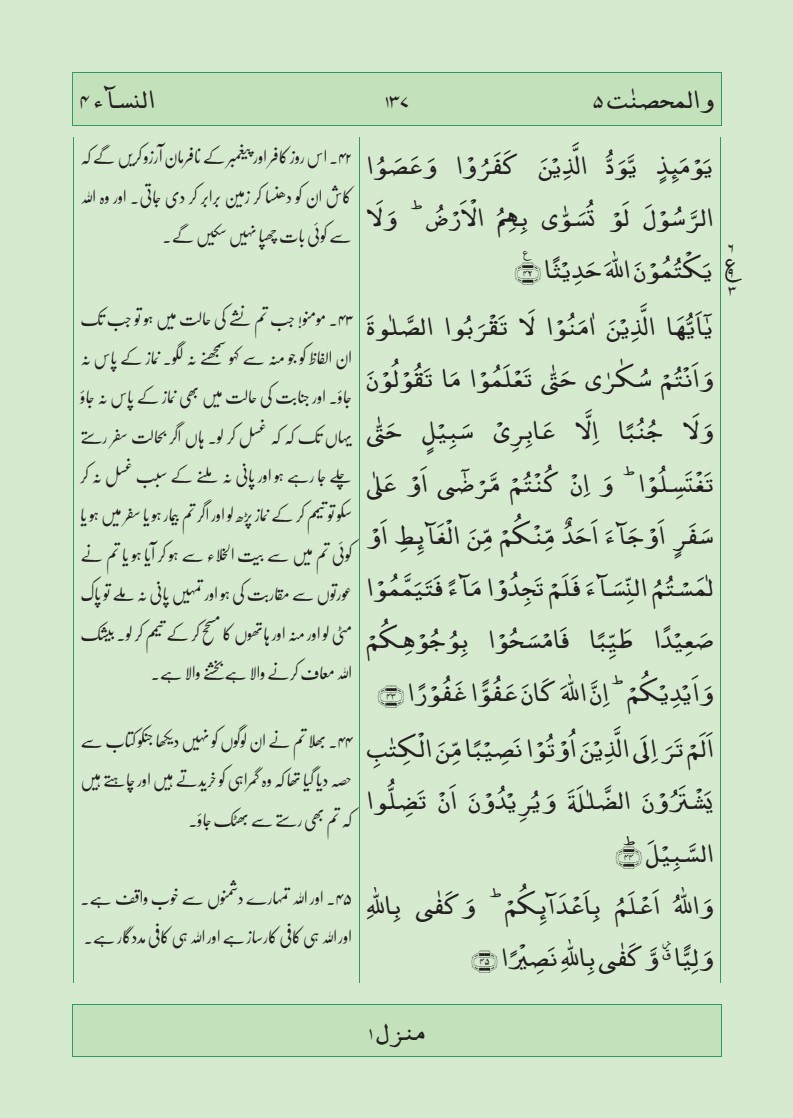 والمحصنٰت ۵
۱۳۷
النسآء ۴
يَوۡمَٮِٕذٍ يَّوَدُّ الَّذِيۡنَ كَفَرُوۡا وَعَصَوُا
الرَّسُوۡلَ لَوۡ تُسَوّٰى بِهِمُ الۡاَرۡضُ ؕ وَلَا
يَكۡتُمُوۡنَ اللّٰهَ حَدِيۡثًا ۴۲
يٰۤاَيُّهَا الَّذِيۡنَ اٰمَنُوۡا لَا تَقۡرَبُوا الصَّلٰوةَ
وَاَنۡتُمۡ سُكٰرٰى حَتّٰى تَعۡلَمُوۡا مَا تَقُوۡلُوۡنَ
وَلَا جُنُبًا اِلَّا عَابِرِىۡ سَبِيۡلٍ حَتّٰى
تَغۡتَسِلُوۡا ؕ وَ اِنۡ كُنۡتُمۡ مَّرۡضٰۤى اَوۡ عَلٰى
سَفَرٍ اَوۡجَآءَ اَحَدٌ مِّنۡكُمۡ مِّنَ الۡغَآٮِٕطِ اَوۡ
لٰمَسۡتُمُ النِّسَآءَ فَلَمۡ تَجِدُوۡا مَآءً فَتَيَمَّمُوۡا
صَعِيۡدًا طَيِّبًا فَامۡسَحُوۡا بِوُجُوۡهِكُمۡ
وَاَيۡدِيۡكُمۡ ؕ اِنَّ اللّٰهَ كَانَ عَفُوًّا غَفُوۡرًا ۴۳
اَلَمۡ تَرَ اِلَى الَّذِيۡنَ اُوۡتُوۡا نَصِيۡبًا مِّنَ الۡكِتٰبِ
يَشۡتَرُوۡنَ الضَّلٰلَةَ وَيُرِيۡدُوۡنَ اَنۡ تَضِلُّوا
السَّبِيۡلَ ؕ ۴۴
وَاللّٰهُ اَعۡلَمُ بِاَعۡدَآٮِٕكُمۡ ؕ وَكَفٰى بِاللّٰهِ
وَلِيًّا ۙ وَّكَفٰى بِاللّٰهِ نَصِيۡرًا ۴۵
۴۲۔ اس روز کافر اور پیغمبر کے نافرمان آرزو کریں گے کہ
کاش ان کو دھنسا کر زمین برابر کر دی جاتی۔ اور وہ اللہ
سے کوئی بات چھپا نہیں سکیں گے۔
۴۳۔ مومنو! جب تم نشے کی حالت میں ہو تو جب تک
ان الفاظ کو جو منہ سے کہو سمجھنے نہ لگو۔ نماز کے پاس نہ
جاؤ۔ اور جنابت کی حالت میں بھی نماز کے پاس نہ جاؤ
یہاں تک کہ کہ غسل کر لو۔ ہاں اگر بحالت سفر رستے
چلے جا رہے ہو اور پانی نہ ملنے کے سبب غسل نہ کر
سکو تو تیمم کر کے نماز پڑھ لو اور اگر تم بیمار ہو یا سفر میں ہو یا
کوئی تم میں سے بیت الخلاء سے ہو کر آیا ہو یا تم نے
عورتوں سے مقاربت کی ہو اور تمہیں پانی نہ ملے تو پاک
مٹی لو اور منہ اور ہاتھوں کا مسح کر کے تیمم کر لو۔ بیشک
اللہ معاف کرنے والا ہے بخشنے والا ہے۔
۴۴۔ بھلا تم نے ان لوگوں کو نہیں دیکھا جنکو کتاب سے
حصہ دیا گیا تھا کہ وہ گمراہی کو خریدتے ہیں اور چاہتے ہیں
کہ تم بھی رستے سے بھٹک جاؤ۔
۴۵۔ اور اللہ تمہارے دشمنوں سے خوب واقف ہے۔
اور اللہ ہی کافی کارساز ہے اور اللہ ہی کافی مددگار ہے۔
منزل ۱